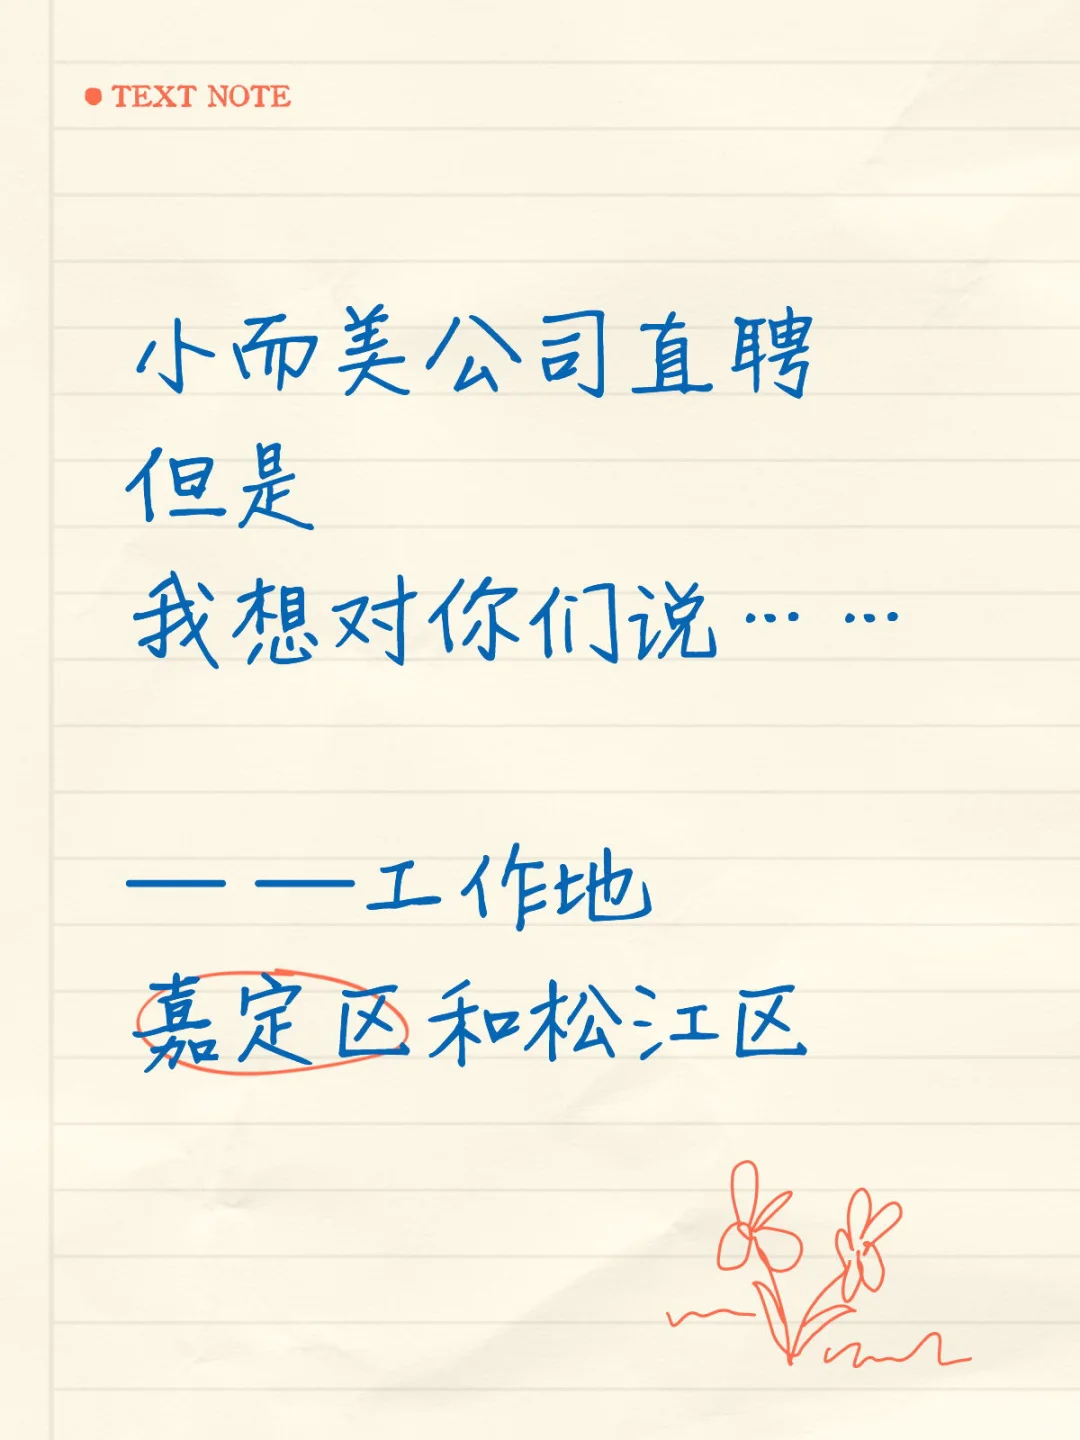 TEXT NOTE
小而美公司直聘
但是
我想对你们说… …
— —工作地
嘉定区和松江区